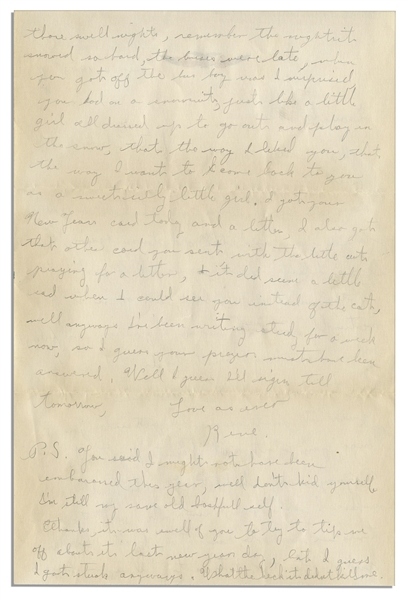 those swell nights, remember the night it
snowed so hard, the buses were late, when
you got off the bus boy was I surprised,
you had on a snowsuit, just like a little
girl all dressed up to go out and play in
the snow, that the way I liked you, that
the way I want to come back to you
as a little girl. I got your
New Years card today and a letter, I also got
that other card you sent with the little cats
praying for a letter, it did seem a little
sad when I could see you instead of the cats,
well anyways I've been writing steady for a week
now, so I guess your prayers must have been
answered. Well I guess I'll sign till
tomorrow, Love as ever
Rene.
P.S. You said I might not have been
embarrassed this year, well don't kid yourself
I'm still my same old bashful self.
Thanks, it was swell of you to try to tip me
off about its last new years day, but I guess
I got stuck anyways. What the heck it didn't kill me.